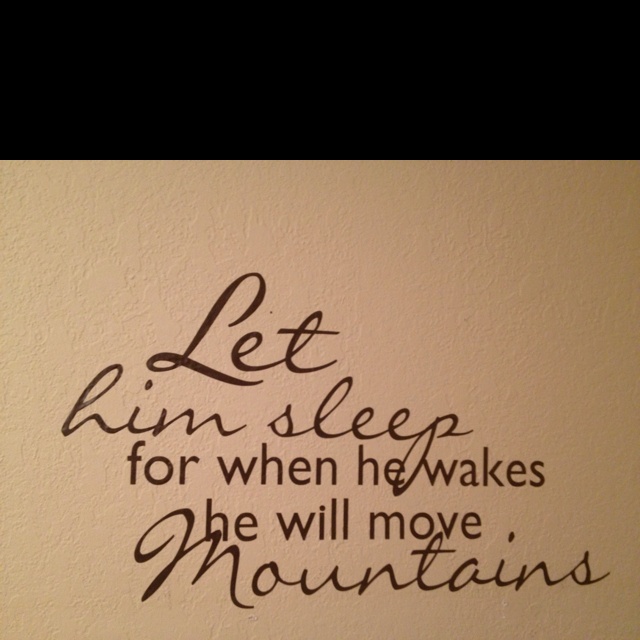 Let
him sleep
for when he wakes
he will move
Mountains